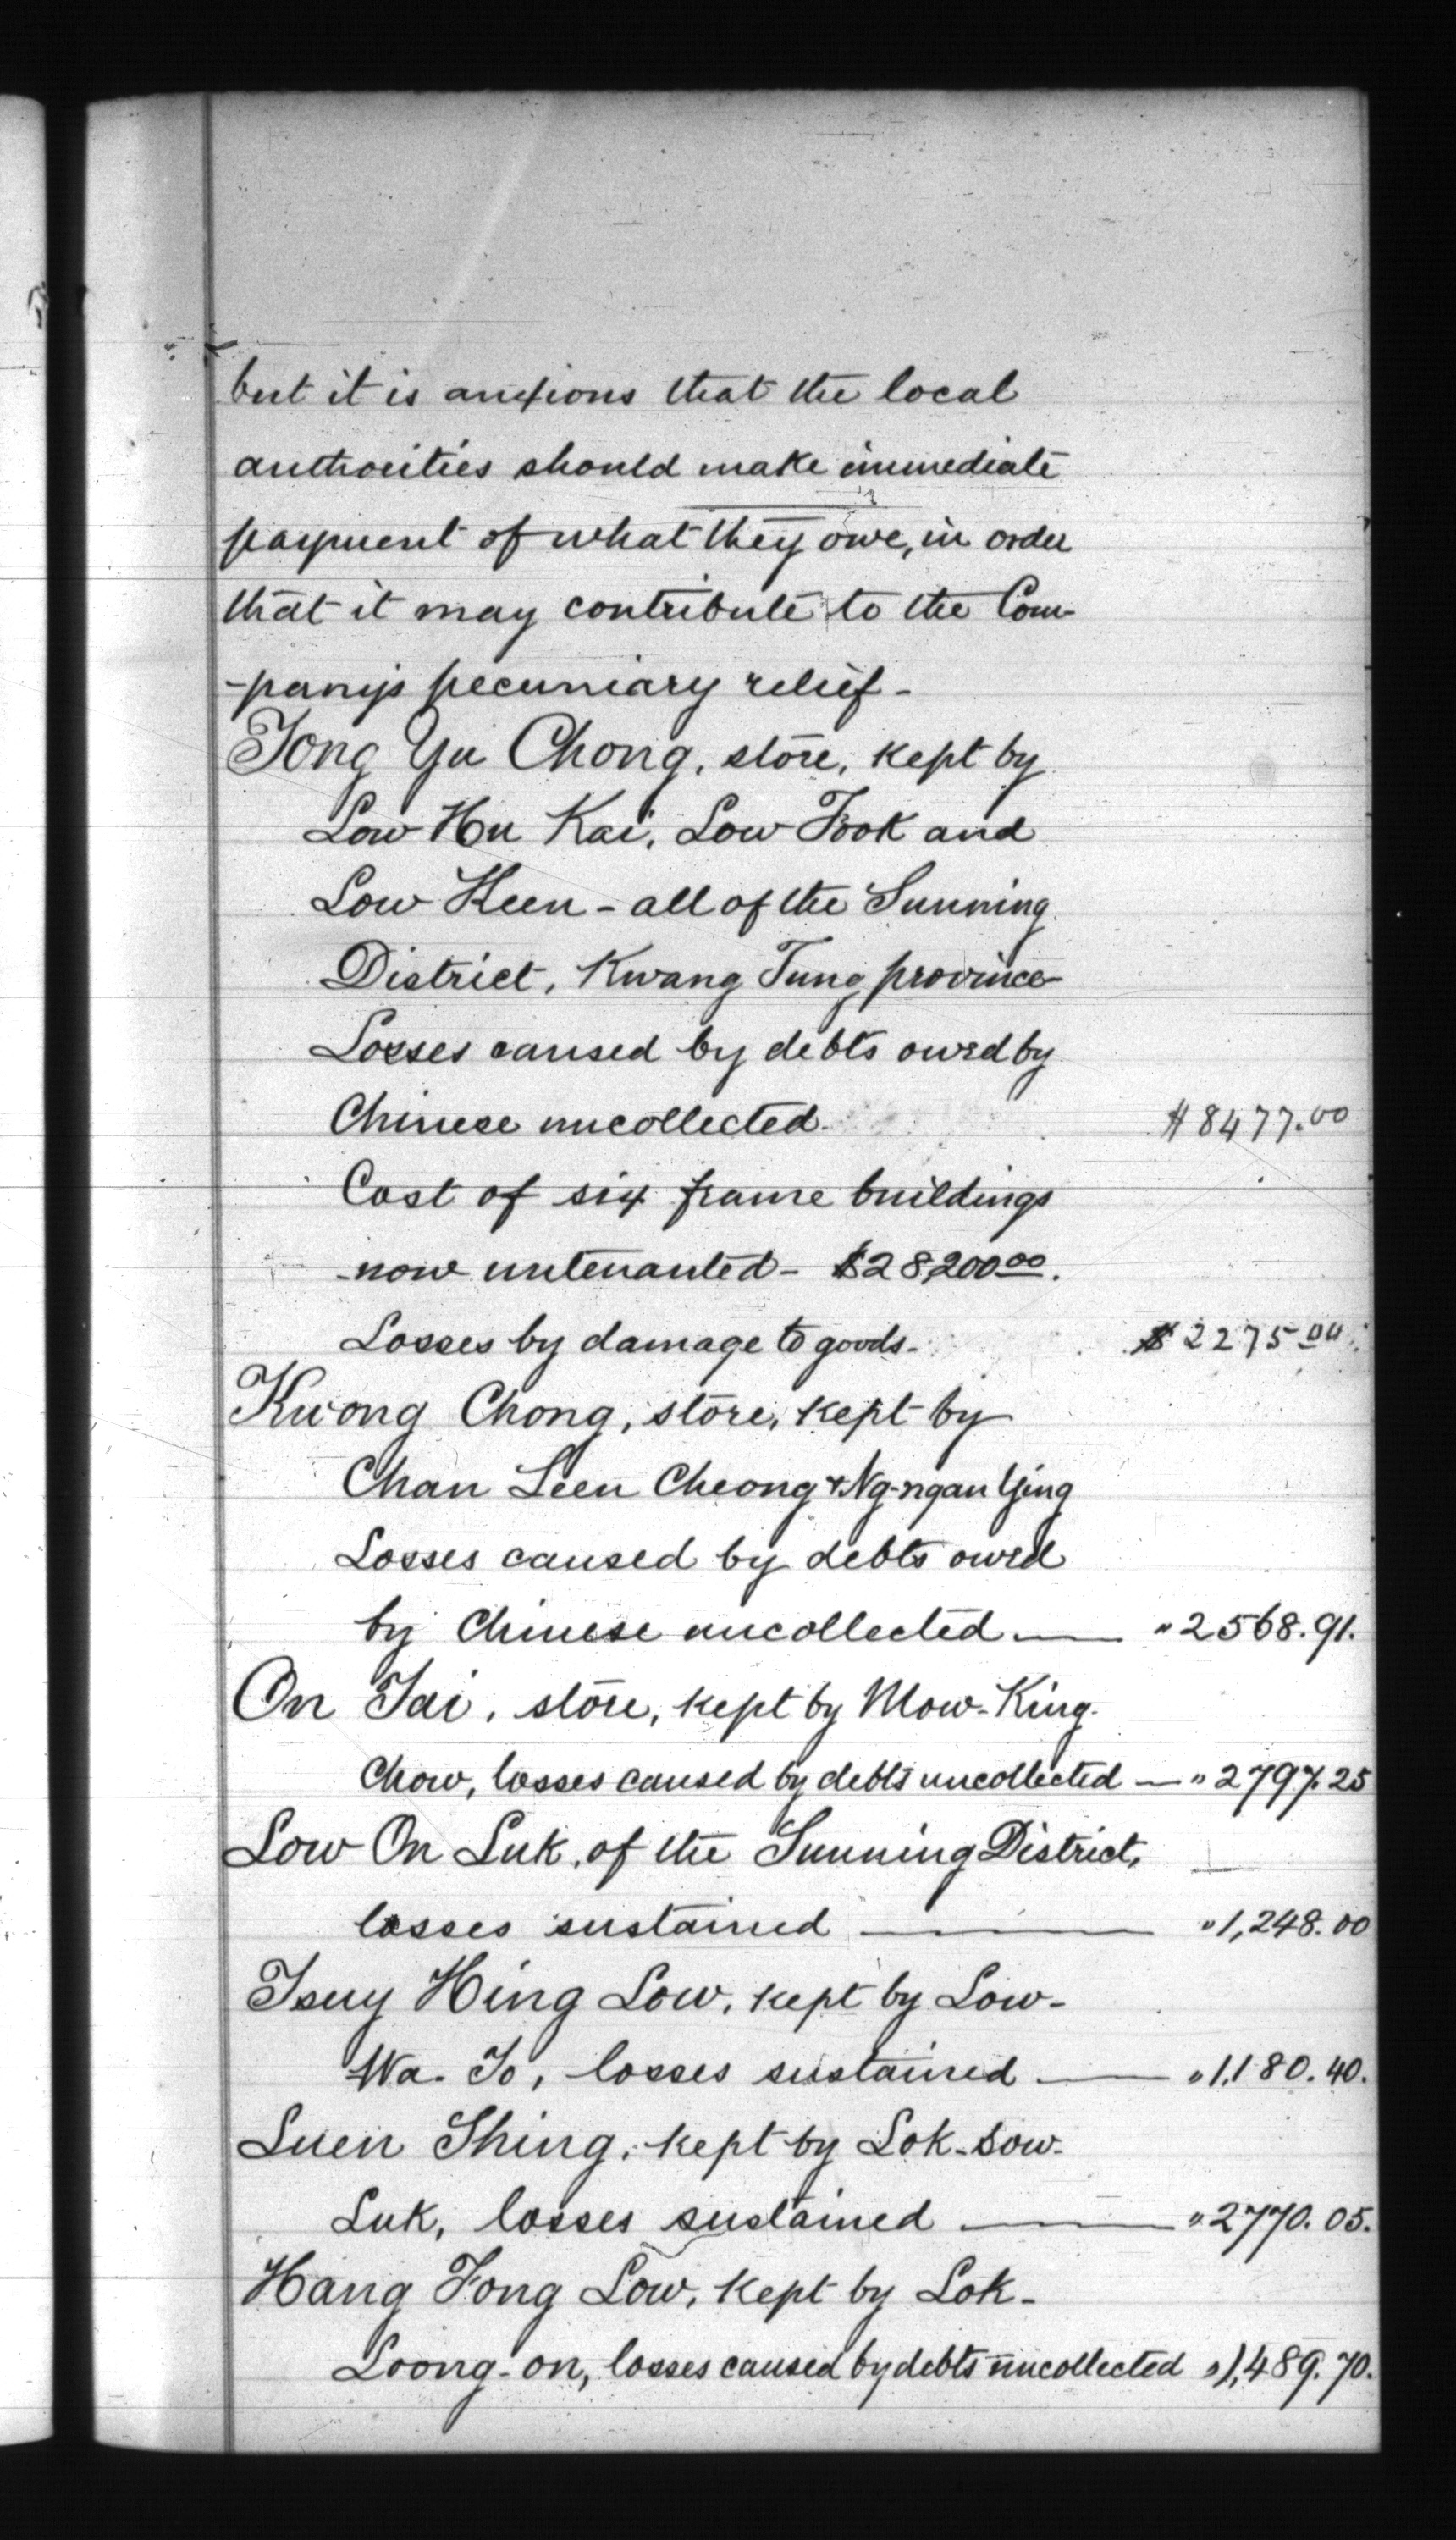 but it is anxious that the local
authorities should make immediate
payment of what they owe, in order
that it may contribute to the Com-
-pany's pecuniary relief-
Tong Yu Chong, store, kept by
Low Hu Kai, Low Fook and
Low Keen - all of the Sunning
District, Kwang Tung province
Losses caused by debts owed by
Chinese uncollected. $8477.00
Cost of six frame buildings
now untenanted - $28,200.00.
Losses by damage to goods. $2275.00
Kwong Chong, store, kept by
Chan Leen Cheong & Ng-ngan Ying
Losses caused by debts owed
by Chinese uncollected — "2568.91.
On Tai, store, kept by Mow-King-
Chow, losses caused by debts uncollected — "2797.25
Low On Luk, of the Sunning District,
losses sustained — "1,248.00
Tsuy Hing Low, kept by Low-
Wa-To, losses sustained — "1,180.40.
Luen Shing, kept by Lok-Sow-
Luk, losses sustained — "2770.05.
Hang Fong Low, kept by Lok-
Loong-on, losses caused by debts uncollected "1,489.70.